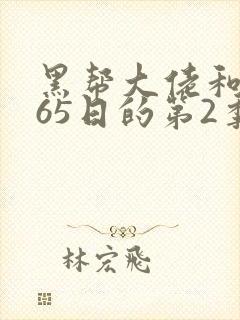 黑帮大佬和
65日的第2季
林宏飛